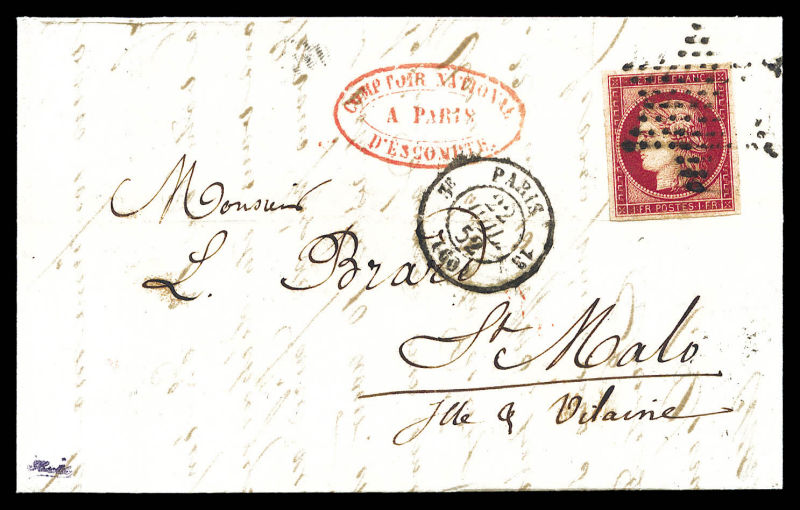 COMPTOIR NATIONAL
A PARIS
D'ESCOMPTE.
REPUB. FRANC.
1 FR. POSTES 1 FR.
PARIS
22
JUIL.
52
Monsieur
L. Brard
St Malo
Ille & Vilaine